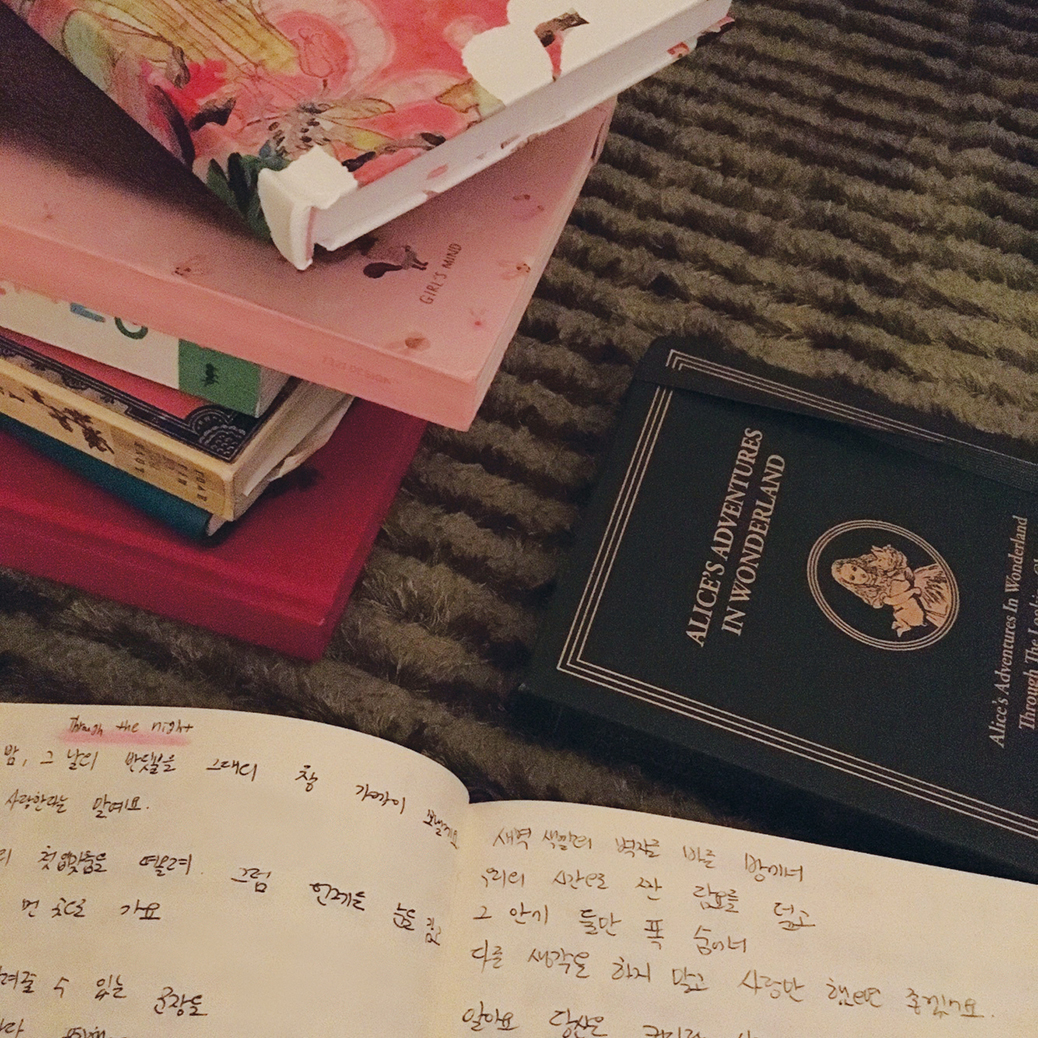 GIRL'S MIND
ALICE'S ADVENTURES
IN WONDERLAND
Alice's Adventures In Wonderland
Through The
Through the night
밤, 그 날의 반딧불을 그대의 창 가까이
사랑한다는 말예요.
첫 입맞춤을 떠올려. 그럼 언제든 눈을 감고
먼 곳으로 가요
수 있는 문장을
새벽 색깔의 벽지를 바른 방에서
우리의 시간으로 짠 담요를 덮고
그 안에 둘만 푹 숨어서
다른 생각은 하지 말고 사랑만 했으면 좋겠네요.
알아요 당신은